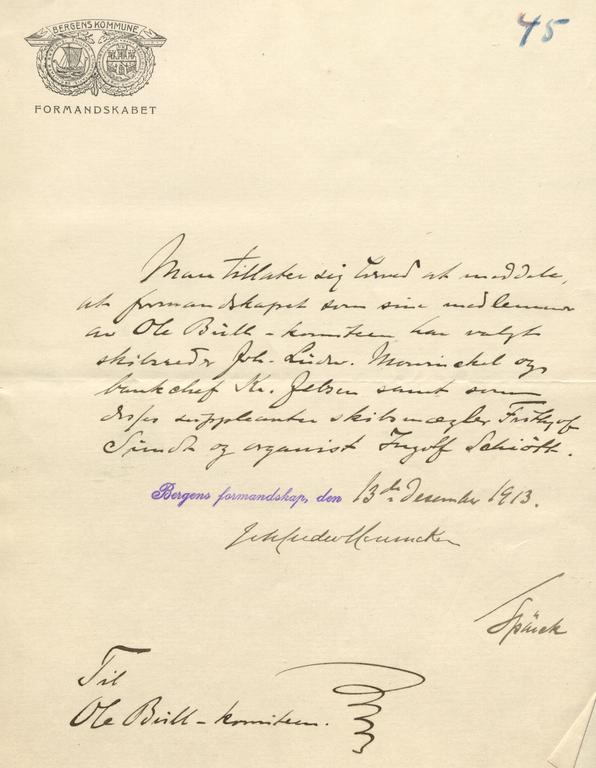 45
BERGENS KOMMUNE
FORMANDSKABET
Man tillater sig herved at meddele,
at formandskapet som sine medlemmer
av Ole Bull-komiteen har valgt
skibsreder Joh. Ludw. Mowinckel og
bankchef Kr. Jebsen samt som
disses suppleanter skibsmægler Frithjof
Sundt og organist Ingolf Schiött.
Bergens formandskap, den 13de desember 1913.
Joh Ludw Mowinckel
Til
Ole Bull-komiteen.